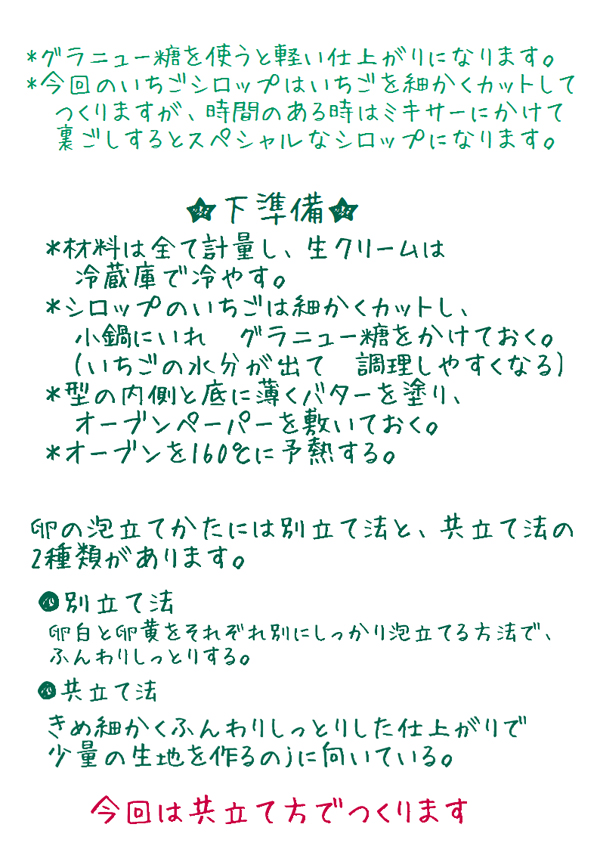 *グラニュー糖を使うと軽い仕上がりになります。
*今回のいちごシロップはいちごを細かくカットして
つくりますが、時間のある時はミキサーにかけて
裏ごしするとスペシャルなシロップになります。
★下準備★
*材料は全て計量し、生クリームは
冷蔵庫で冷やす。
*シロップのいちごは細かくカットし、
小鍋にいれ グラニュー糖をかけておく。
(いちごの水分が出て 調理しやすくなる)
*型の内側と底に薄くバターを塗り、
オーブンペーパーを敷いておく。
*オーブンを160℃に予熱する。
卵の泡立てかたには別立て法と、共立て法の
2種類があります。
●別立て法
卵白と卵黄をそれぞれ別にしっかり泡立てる方法で、
ふんわりしっとりする。
●共立て法
きめ細かくふんわりしっとりした仕上がりで
少量の生地を作るのjに向いている。
今回は共立て方でつくります